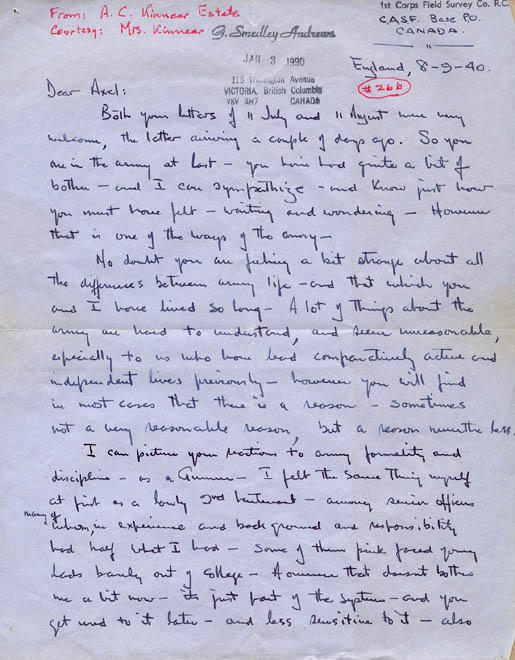 From: A. C. Kinnear Estate
Courtesy: Mrs. Kinnear
G. Smedley Andrews
JAN 3 1990
115 Wellington Avenue
VICTORIA, British Columbia
V8V 4H7 CANADA
1st Corps Field Survey Co. R.C.
C.A.S.F. Base P.O.
CANADA.
"
England, 8-9-40.
#26b
Dear Axel:
Both your letters of 11 July and 11 August were very
welcome, the latter arriving a couple of days ago. So you
are in the army at last - you have had quite a bit of
bother - and I can sympathize - and know just how
you must have felt - waiting and wondering - However
that is one of the ways of the army -
No doubt you are feeling a bit strange about all
the differences between army life - and that which you
and I have lived so long - A lot of things about the
army are hard to understand, and seem unreasonable,
especially to us who have lead comparatively active and
independent lives previously - however you will find
in most cases that there is a reason - sometimes
not a very reasonable reason, but a reason never the less.
I can picture your reactions to army formality and
discipline - as a Gunner - I felt the same thing myself
at first as a lowly 2nd lieutenant - among senior officers
many of whom, in experience and background and responsibility
had half what I had - Some of them pink faced young
lads barely out of college - However that doesnt bother
me a bit now - its just part of the system - and you
get used to it later - and less sensitive to it - also